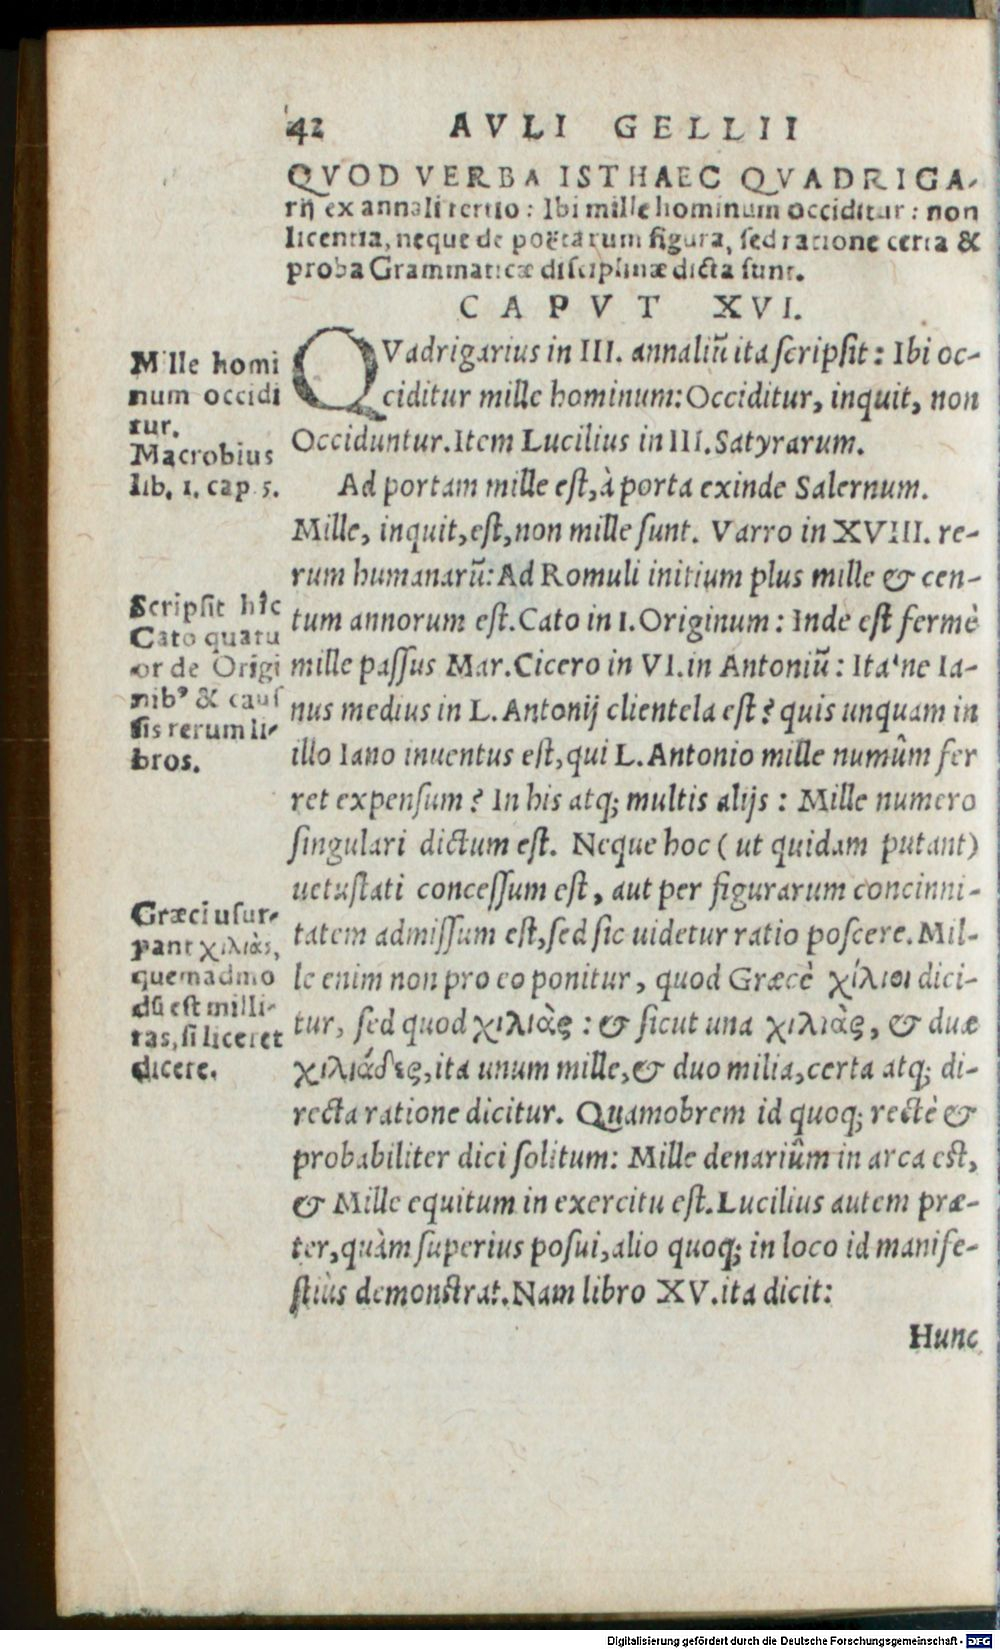 42 AVLI GELLII
QVOD VERBA ISTHAEC QVADRIGA-
rij ex annali tertio: Ibi mille hominum occiditur: non
licentia, neque de poëtarum figura, sed ratione certa &
proba Grammaticæ disciplinæ dicta sunt.
CAPVT XVI.
QVadrigarius in III. annaliũ ita scripsit: Ibi oc-
ciditur mille hominum: Occiditur, inquit, non
Occiduntur. Item Lucilius in III. Satyrarum.
Ad portam mille est, à porta exinde Salernum.
Mille, inquit, est, non mille sunt. Varro in XVIII. re-
rum humanarũ: Ad Romuli initium plus mille & cen-
tum annorum est. Cato in I. Originum: Inde est fermè
mille passus Mar. Cicero in VI. in Antoniũ: Ita'ne Ia-
nus medius in L. Antonij clientela est? quis unquam in
illo Iano inuentus est, qui L. Antonio mille numûm fer
ret expensum? In his atq; multis alijs: Mille numero
singulari dictum est. Neque hoc (ut quidam putant)
uetustati concessum est, aut per figurarum concinni-
tatem admissum est, sed sic uidetur ratio poscere. Mil-
le enim non pro eo ponitur, quod Græcè χίλιοι dici-
tur, sed quod χιλιὰς: & sicut una χιλιὰς, & duæ
χιλιάδες, ita unum mille, & duo milia, certa atq; di-
recta ratione dicitur. Quamobrem id quoq; rectè &
probabiliter dici solitum: Mille denariûm in arca est,
& Mille equitum in exercitu est. Lucilius autem præ-
ter, quàm superius posui, alio quoq; in loco id manife-
stiùs demonstrat. Nam libro XV. ita dicit:
Hunc
Mille homi
num occidi
tur.
Macrobius
lib. 1. cap. 5.
Scripsit hîc
Cato quatu
or de Origi
nibꝰ & caus
sis rerum li-
bros.
Græci usur-
pant χιλιὰς,
quemadmo
dũ est milli-
tas, si liceret
dicere.
Digitalisierung gefördert durch die Deutsche Forschungsgemeinschaft - DFG